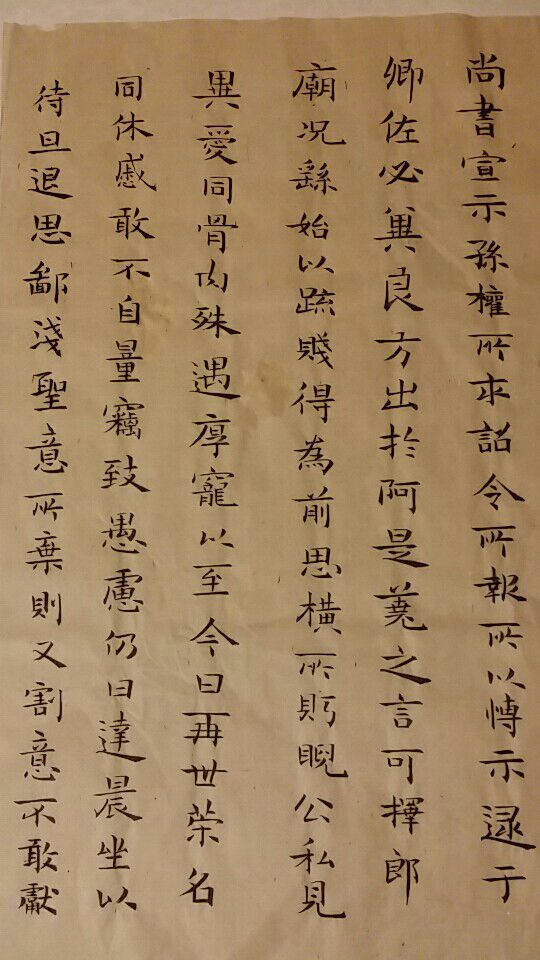 尚書宣示孫權所求詔令所報所以博示逮于
卿佐必冀良方出於阿是蕘之言可擇郎
廟况繇始以疏賤得為前思橫所眄睨公私見
異愛同骨肉殊遇厚寵以至今日再世榮名
同休慼敢不自量竊致愚慮仍日達晨坐以
待旦退思鄙淺聖意所棄則又割意不敢獻